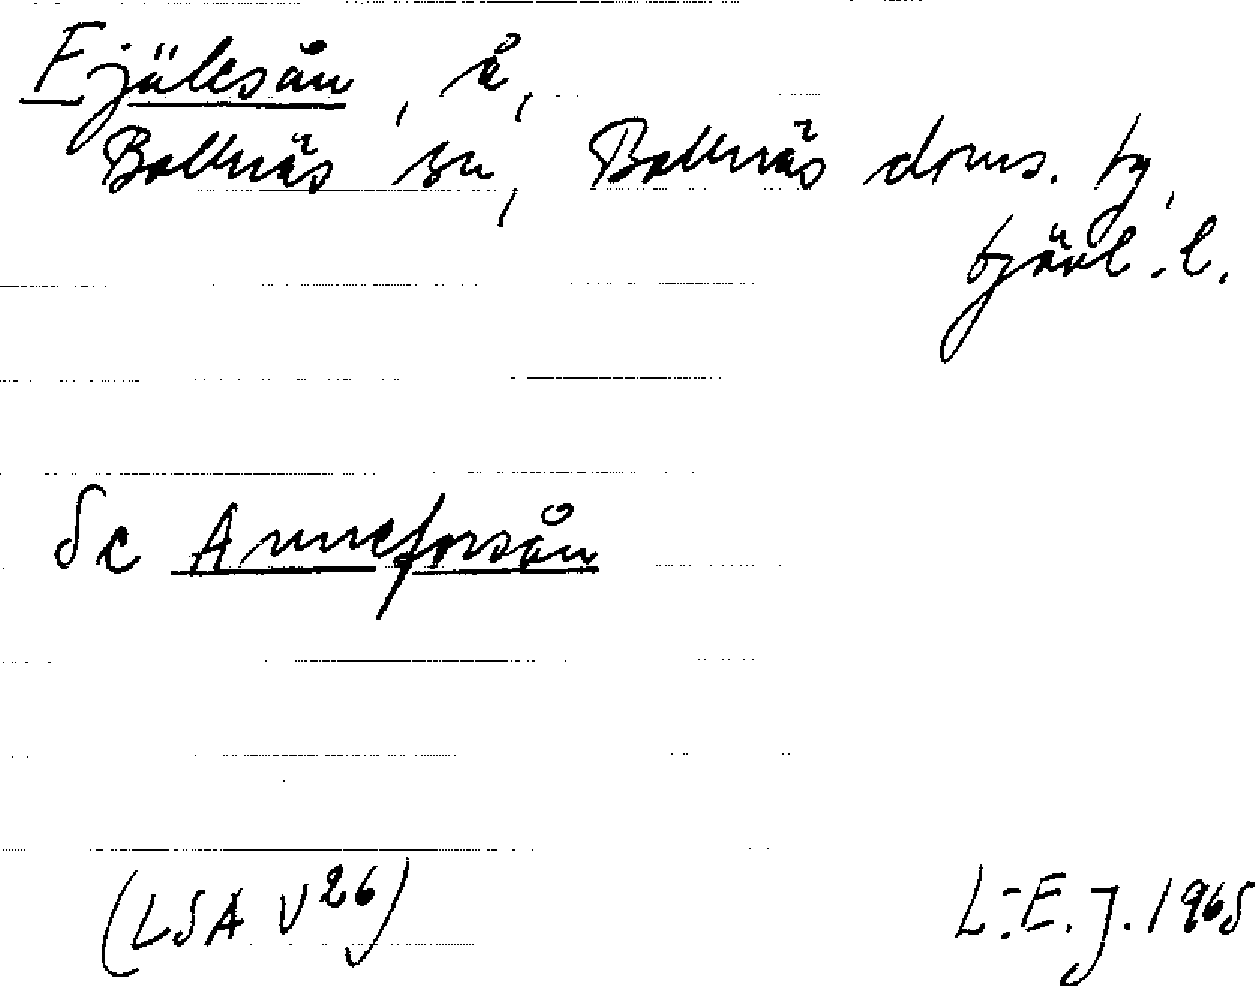 Fjälesån, å,
Bollnäs sn, Bollnäs doms. tg,
Gävl. l.
Se Anneforsån
(LSA V26)
L.-E. J. 1965